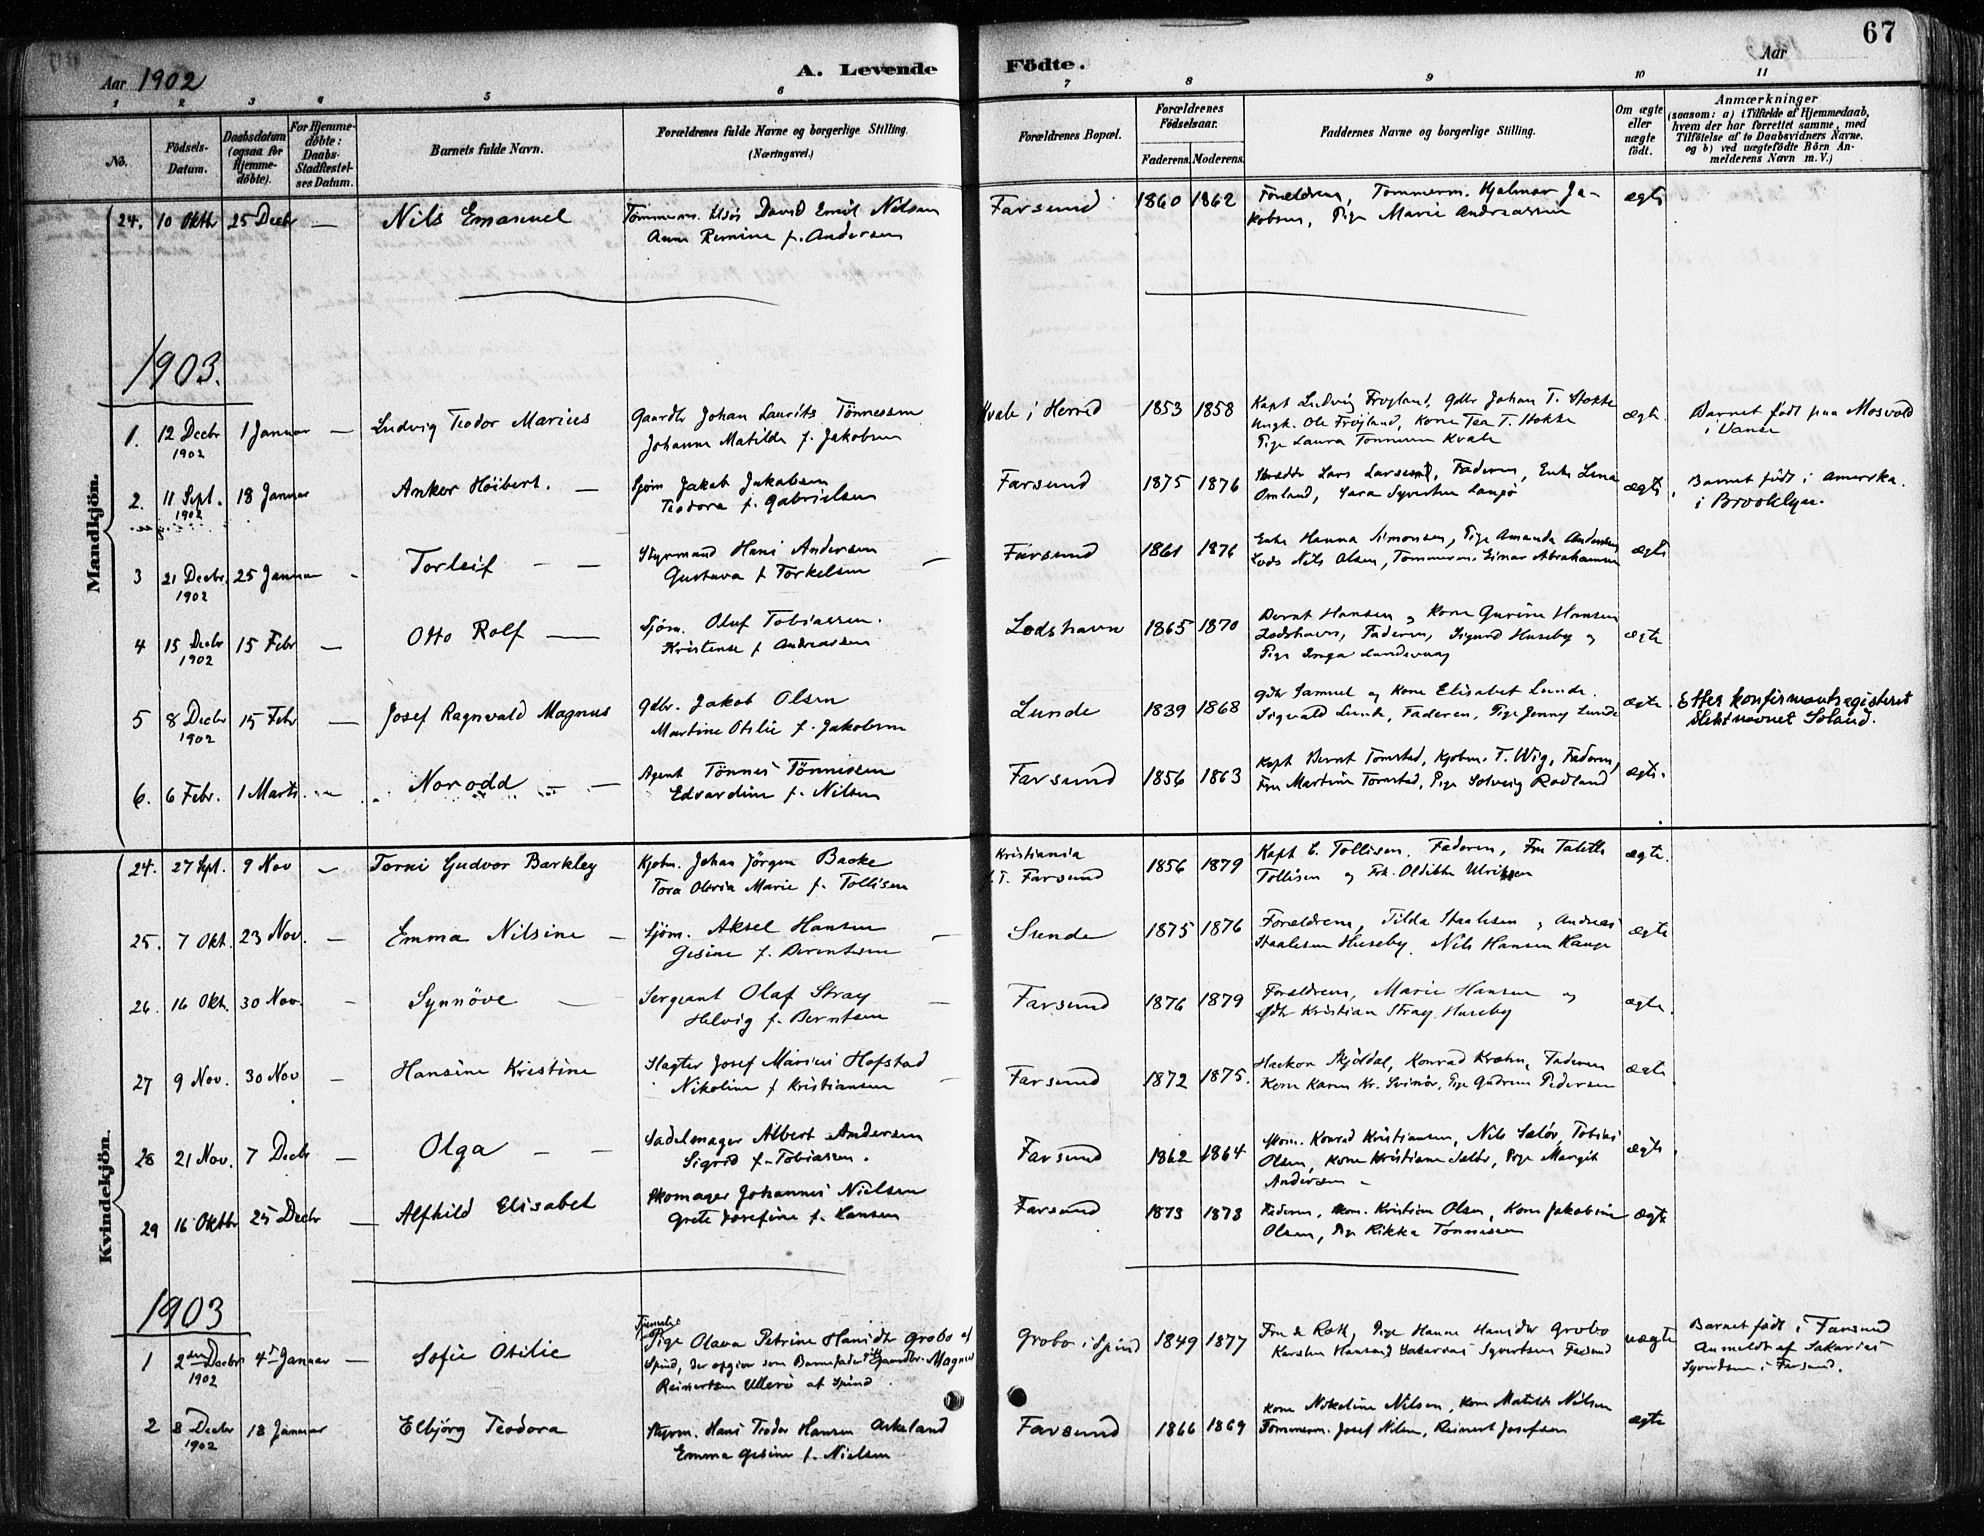 67
Aar 1902
A. Levende Födte.
Aar
1 2 3 4 5 6 7 8 9 10 11
No.
Födsels-Datum.
Daabsdatum (ogsaa for Hjemmedöbte).
For Hjemmedöbte: Daabs-Stadfæstelses Datum.
Barnets fulde Navn.
Forældrenes fulde Navne og borgerlige Stilling.
(Næringsvei.)
Forældrenes Bopæl.
Forældrenes Födselsaar.
Faderens. Moderens.
Faddernes Navne og borgerlige Stilling.
Om ægte eller uægte födt.
Anmærkninger
(saasom: a) i Tilfælde af Hjemmedaab, hvem der har forrettet samme, med Tilföielse af to Daabsvidners Navne, og b) ved uægtefödte Börn Anmelderens Navn m. V.)
Mandkjön.
24. 10 Oktbr 25 Decbr — Nils Emanuel
Tömmerm. David Emil Nilsen
Anna f. Andersen
Farsund 1860 1862
Forældrene, Tømmerm. Hjalmar Ja-
kobsen, Pige Marie Andreassen
ægte
1903.
1. 12 Decbr 1902 1 Januar — Ludvig Teodor Marius
Gaardbr Johan Laurits Tönnessen
Johanne Matilde f. Jakobsen
Kvale i Herred 1853 1858
Kapt Ludvig Frøyland, Gdbr Johan T. Stokke
Ungk. Ole Fröjland, Kone Tea T. Stokke
Pige Laura Tönnesen Kvale
ægte.
Barnet födt paa Mosvold
i Vanse
2. 11 Sept. 1902 18 Januar Anker Höibert. —
Sjöm Jakob Jakobsen
Teodora f. Gabrielsen
Farsund 1875 1876
Lars Larsen, Faderen, Enke Lina
Omland, Sara Syvertsen
ægte.
Barnet födt i Amerika.
i Brooklyn.
3 21 Decbr. 1902 25 Januar - Torleif — —
Styrmand Hans Andersen
Gustava f Torkelsen
Farsund 1861 1876
Enke Hanna Simonsen, Pige Amanda Andersen
Lods Nils Olsen, Tømmerm. Einar Abrahamsen
ægte
4 15 Decbr 1902 15 Febr — Otto Rolf —
Sjöm. Oluf Tobiassen.
Kristense f Andreassen
Lodshavn 1865 1870
Bernt Hansen og Kone Gurine Hansen
Lodshavn, Faderen, Sigurd Huseby og
Pige Inga
ægte
5 8 Decbr 1902 15 Febr — Josef Ragnvald Magnus
Gdbr. Jakob Olsen
Martine Otilie f. Jakobsen
Lunde 1839 1868
Gdbr Samuel og Kone Elisabet Lunde.
Sigvald Lunde, Faderen, Pige Jenny Lunde
ægte.
Efter konfirmantregisteret
slektnavnet Soland.
6. 6 Febr. 1 Marts. Norodd — —
Agent Tönnes Tönnessen
Edvardine f. Nilsen
Farsund 1856 1863
Kapt Bernt Tomstad, Kjøbm. T. Wig, Faderen,
Fru Martine Tomstad, Pige Solveig Rodland
ægte.
Kvindekjön.
24. 27 Spt. 9 Nov — Terni Gudvor Barkley
Kjøbm. Johan Jörgen Backe
Tora Olevia Marie f. Tollisen
Kristiania
f.T. Farsund 1856 1879
Kapt C. Tollisen. Faderen, Fru Talette
Tollisen og Frk. Ulriksen
ægte.
25. 7 Okt. 23 Nov. — Emma Nilsine —
Sjöm. Aksel Hansen
Gesine f. Berentsen
Sunde 1875 1876
Forældrene, Tilda Staalesen, Andreas
Staalesen Huseby. Nils Hansen Hauge
ægte
26. 16 Okt. 30 Nov. — Synnöve —
Sergeant Olaf Stray
Helvig f. Berntsen
Farsund 1876 1879
Forældrene, Marie Hansen og
Gdbr Kristian Stray Huseby
ægte.
27 9 Nov. 30 Nov — Hansine Kristine
Slagter Josef Marius Hofstad
Nikoline f Kristiansen
Farsund 1872 1875.
Haakon Skjöldal, Konrad Kræhn, Faderen
Kone Karen Kr. Svinør, Pige Gudrun Pedersen
ægte
28 21 Nov. 7 Decbr — Olga — —
Sadelmager Albert Andersen
Sigrid f. Tobiassen.
Farsund 1862 1864
Skom. Konrad Kristiansen, Nils Salør, Tobias
Olsen, Kone Kristiane Salør, Pige Margit
Andersen —
ægte
29 16 Oktbr 25 Decbr — Alfhild Elisabet
Skomager Johannes Nielsen
Grete Josefine f. Hansen
Farsund 1873 1873
Faderen, Skom. Kristian Olsen, Kone Jakobine
Olsen, Pige Rikka Tönnessen
ægte
1903
1 2den Decbr 1902 4de Januar — Sofie Otilie
Tjeneste
Pige Olava Petrine Hansdtr Grobo af
Spind, der opgiver som Barnefader Gaardbr. Magnus
Reinertsen Ullerö af Spind.
Grobo i Spind 1849 1877
Fru de Rott, Pige Hanne Hansdtr Grobo
Karsten Hansen, Sakarias Syvertsen Farsund
uægte
Barnet födt i Farsund
Anmeldt af Sakarias
Syvertsen i Farsund.
2 8 Decbr 1902 18 Januar Elbjörg Teodora
Styrm. Hans Teodor Hansen Askeland
Emma Gesine f. Nielsen
Farsund 1866 1869
Kone Nikoline Nilsen, Kone Matilde Nilsen
Tømmerm. Josef Nilsen, Reinert Josefsen
ægte